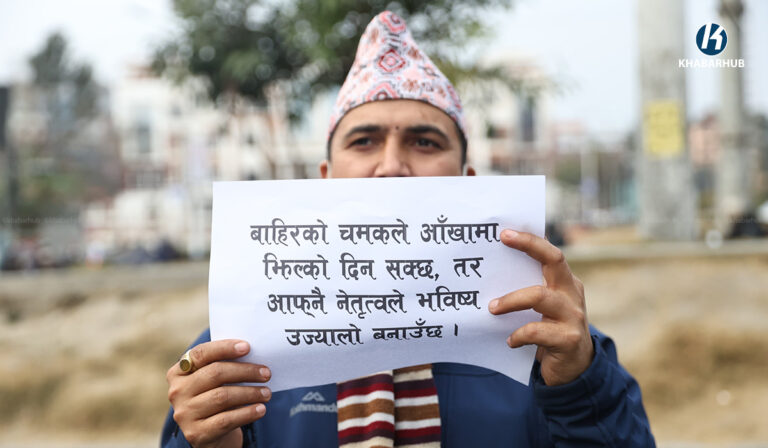 KHABARHUB
बाहिरको चमकले आँखामा
झिल्को दिन सक्छ, तर
आफ्‌नै नेतृत्वले भविष्य
उज्यालो बनाउँछ ।